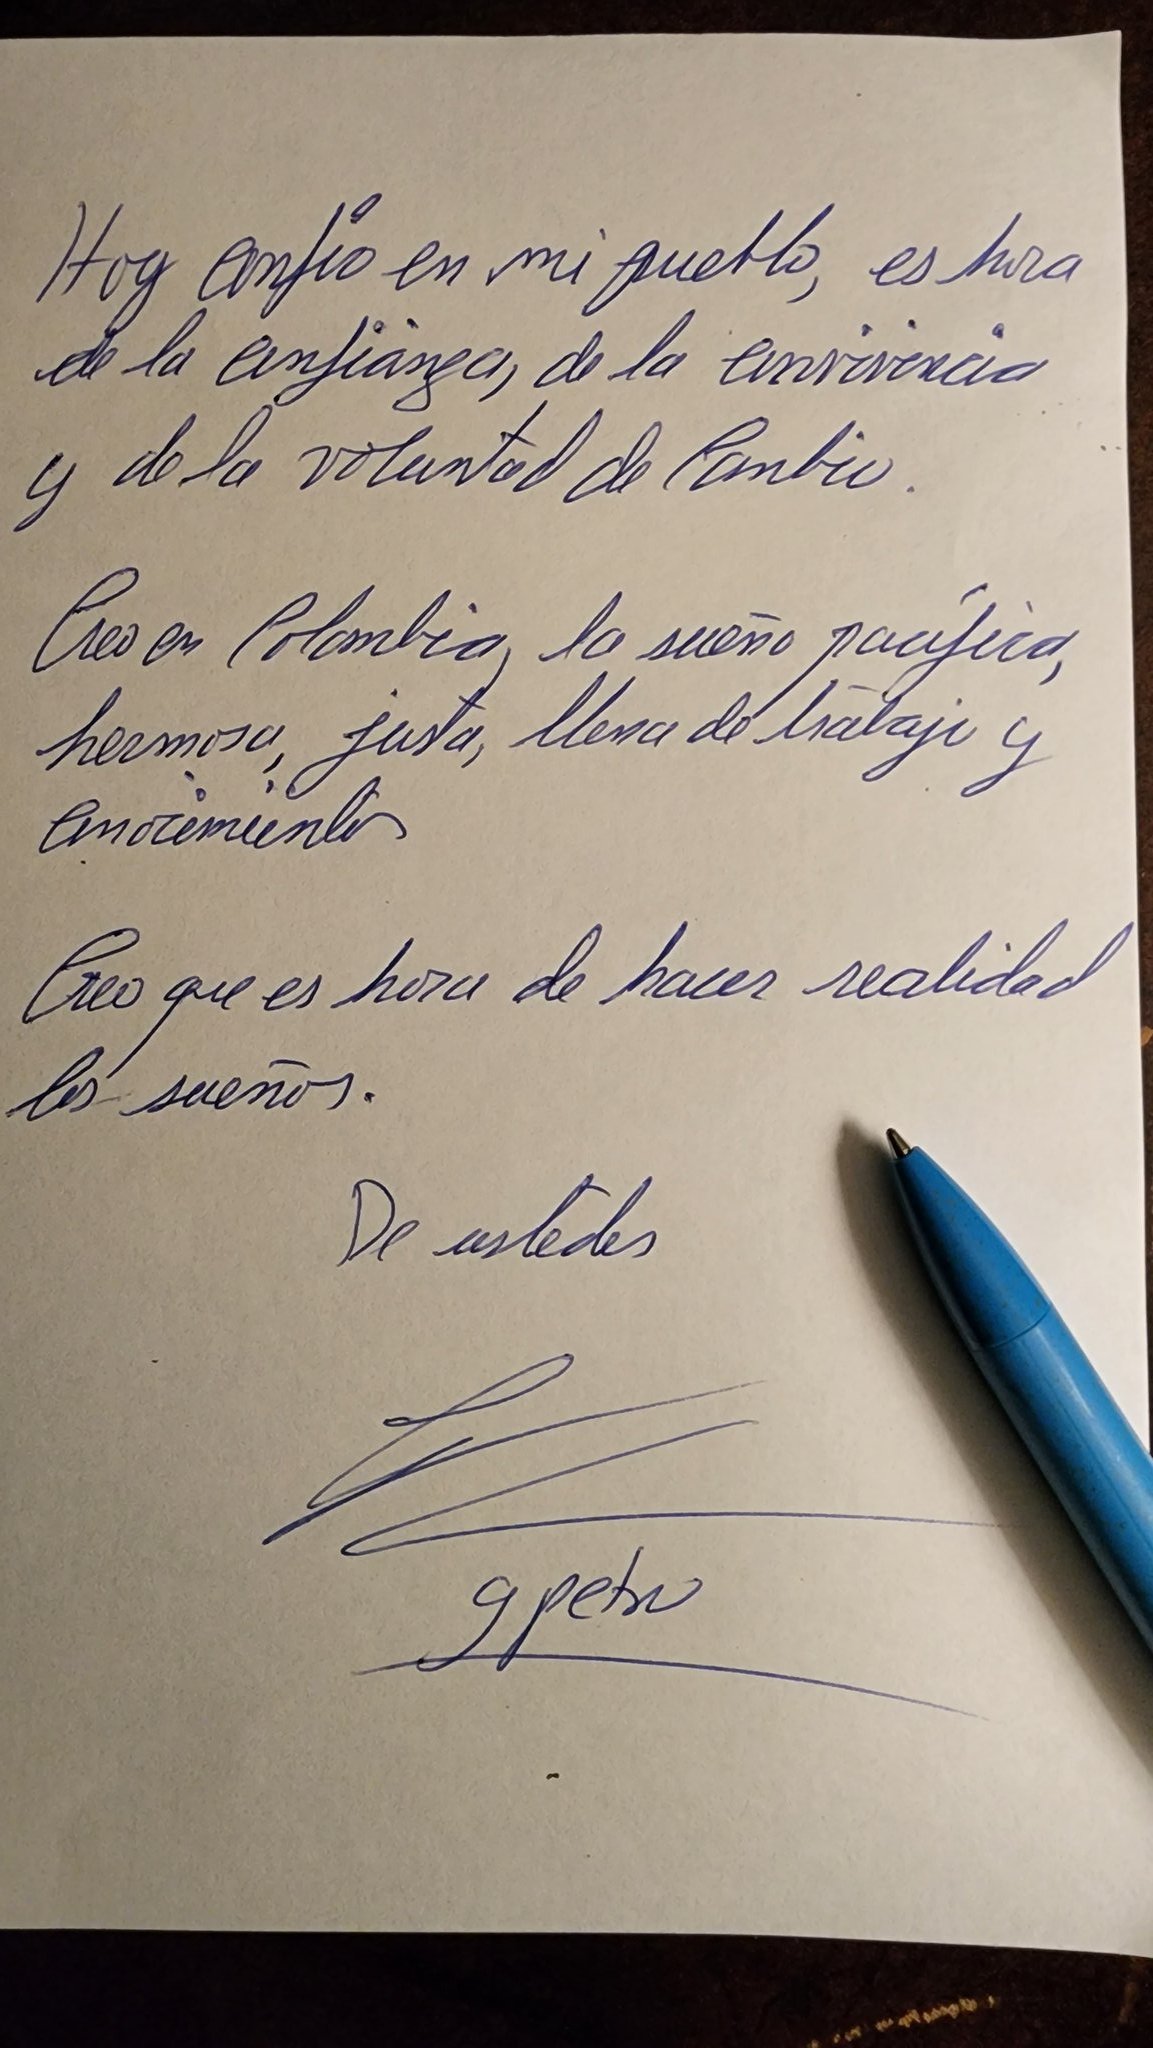 Hoy confío en mi pueblo, es hora
de la confianza, de la convivencia
y de la voluntad de Cambio.
Creo en Colombia, la sueño pacífica,
hermosa, justa, llena de trabajo y
conocimientos
Creo que es hora de hacer realidad
los sueños.
De ustedes
g petro